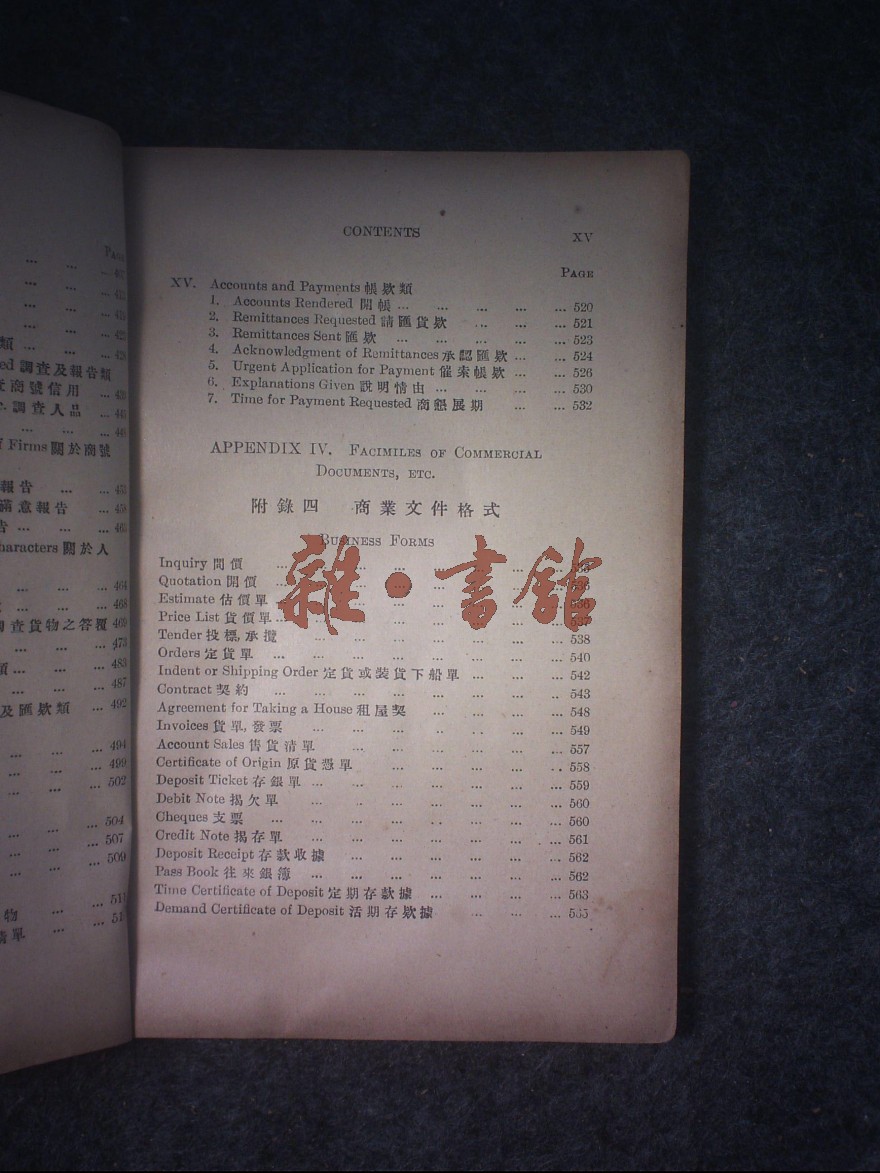 PAGE
407
411
418
422
類 428
ed 調查及報告類
商號信用 439
調查人品 443
Firms 關於商號
報告 453
滿意報告 458
告 463
haracters 關於人
464
468
查貨物之答覆 469
473
類 483
487
及匯欵類 492
494
499
502
504
507
509
物
清單
CONTENTS
XV
PAGE
XV. Accounts and Payments 帳欵類
1. Accounts Rendered 開帳 ... ... ... ... ... 520
2. Remittances Requested 請匯貨欵 ... ... ... 521
3. Remittances Sent 匯欵 ... ... ... ... ... 523
4. Acknowledgment of Remittances 承認匯欵 ... ... 524
5. Urgent Application for Payment 催索帳欵 ... ... 526
6. Explanations Given 說明情由 ... ... ... ... 530
7. Time for Payment Requested 商懇展期 ... ... 532
APPENDIX IV. FACIMILES OF COMMERCIAL
DOCUMENTS, ETC.
附錄四 商業文件格式
BUSINESS FORMS
Inquiry 問價
Quotation 開價 ... 536
Estimate 估價單 ... 536
Price List 貨價單 ... 537
Tender 投標,承攬 ... ... ... ... ... 538
Orders 定貨單 ... ... ... ... ... ... 540
Indent or Shipping Order 定貨或裝貨下船單 ... ... ... 542
Contract 契約 ... ... ... ... ... ... ... 543
Agreement for Taking a House 租屋契 ... ... ... ... 548
Invoices 貨單,發票 ... ... ... ... ... ... 549
Account Sales 售貨清單 ... ... ... ... ... 557
Certificate of Origin 原貨憑單 ... ... ... ... ... 558
Deposit Ticket 存銀單 ... ... ... ... ... ... 559
Debit Note 揭欠單 ... ... ... ... ... ... 560
Cheques 支票 ... ... ... ... ... ... ... 560
Credit Note 揭存單 ... ... ... ... ... ... 561
Deposit Receipt 存款收據 ... ... ... ... ... 562
Pass Book 往來銀簿 ... ... ... ... ... ... 562
Time Certificate of Deposit 定期存款據 ... ... ... ... 563
Demand Certificate of Deposit 活期存欵據 ... ... ...
雜·書館